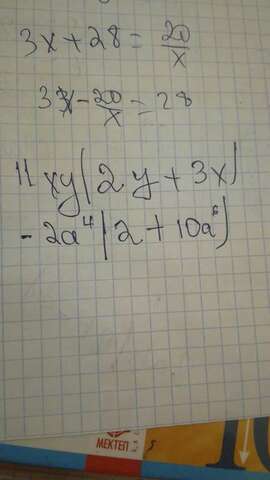 3x+28=20/x
33x-20/x=28
11xy(2y+3x)
-2a⁴(2+10a⁶)
МЕКТЕП
5